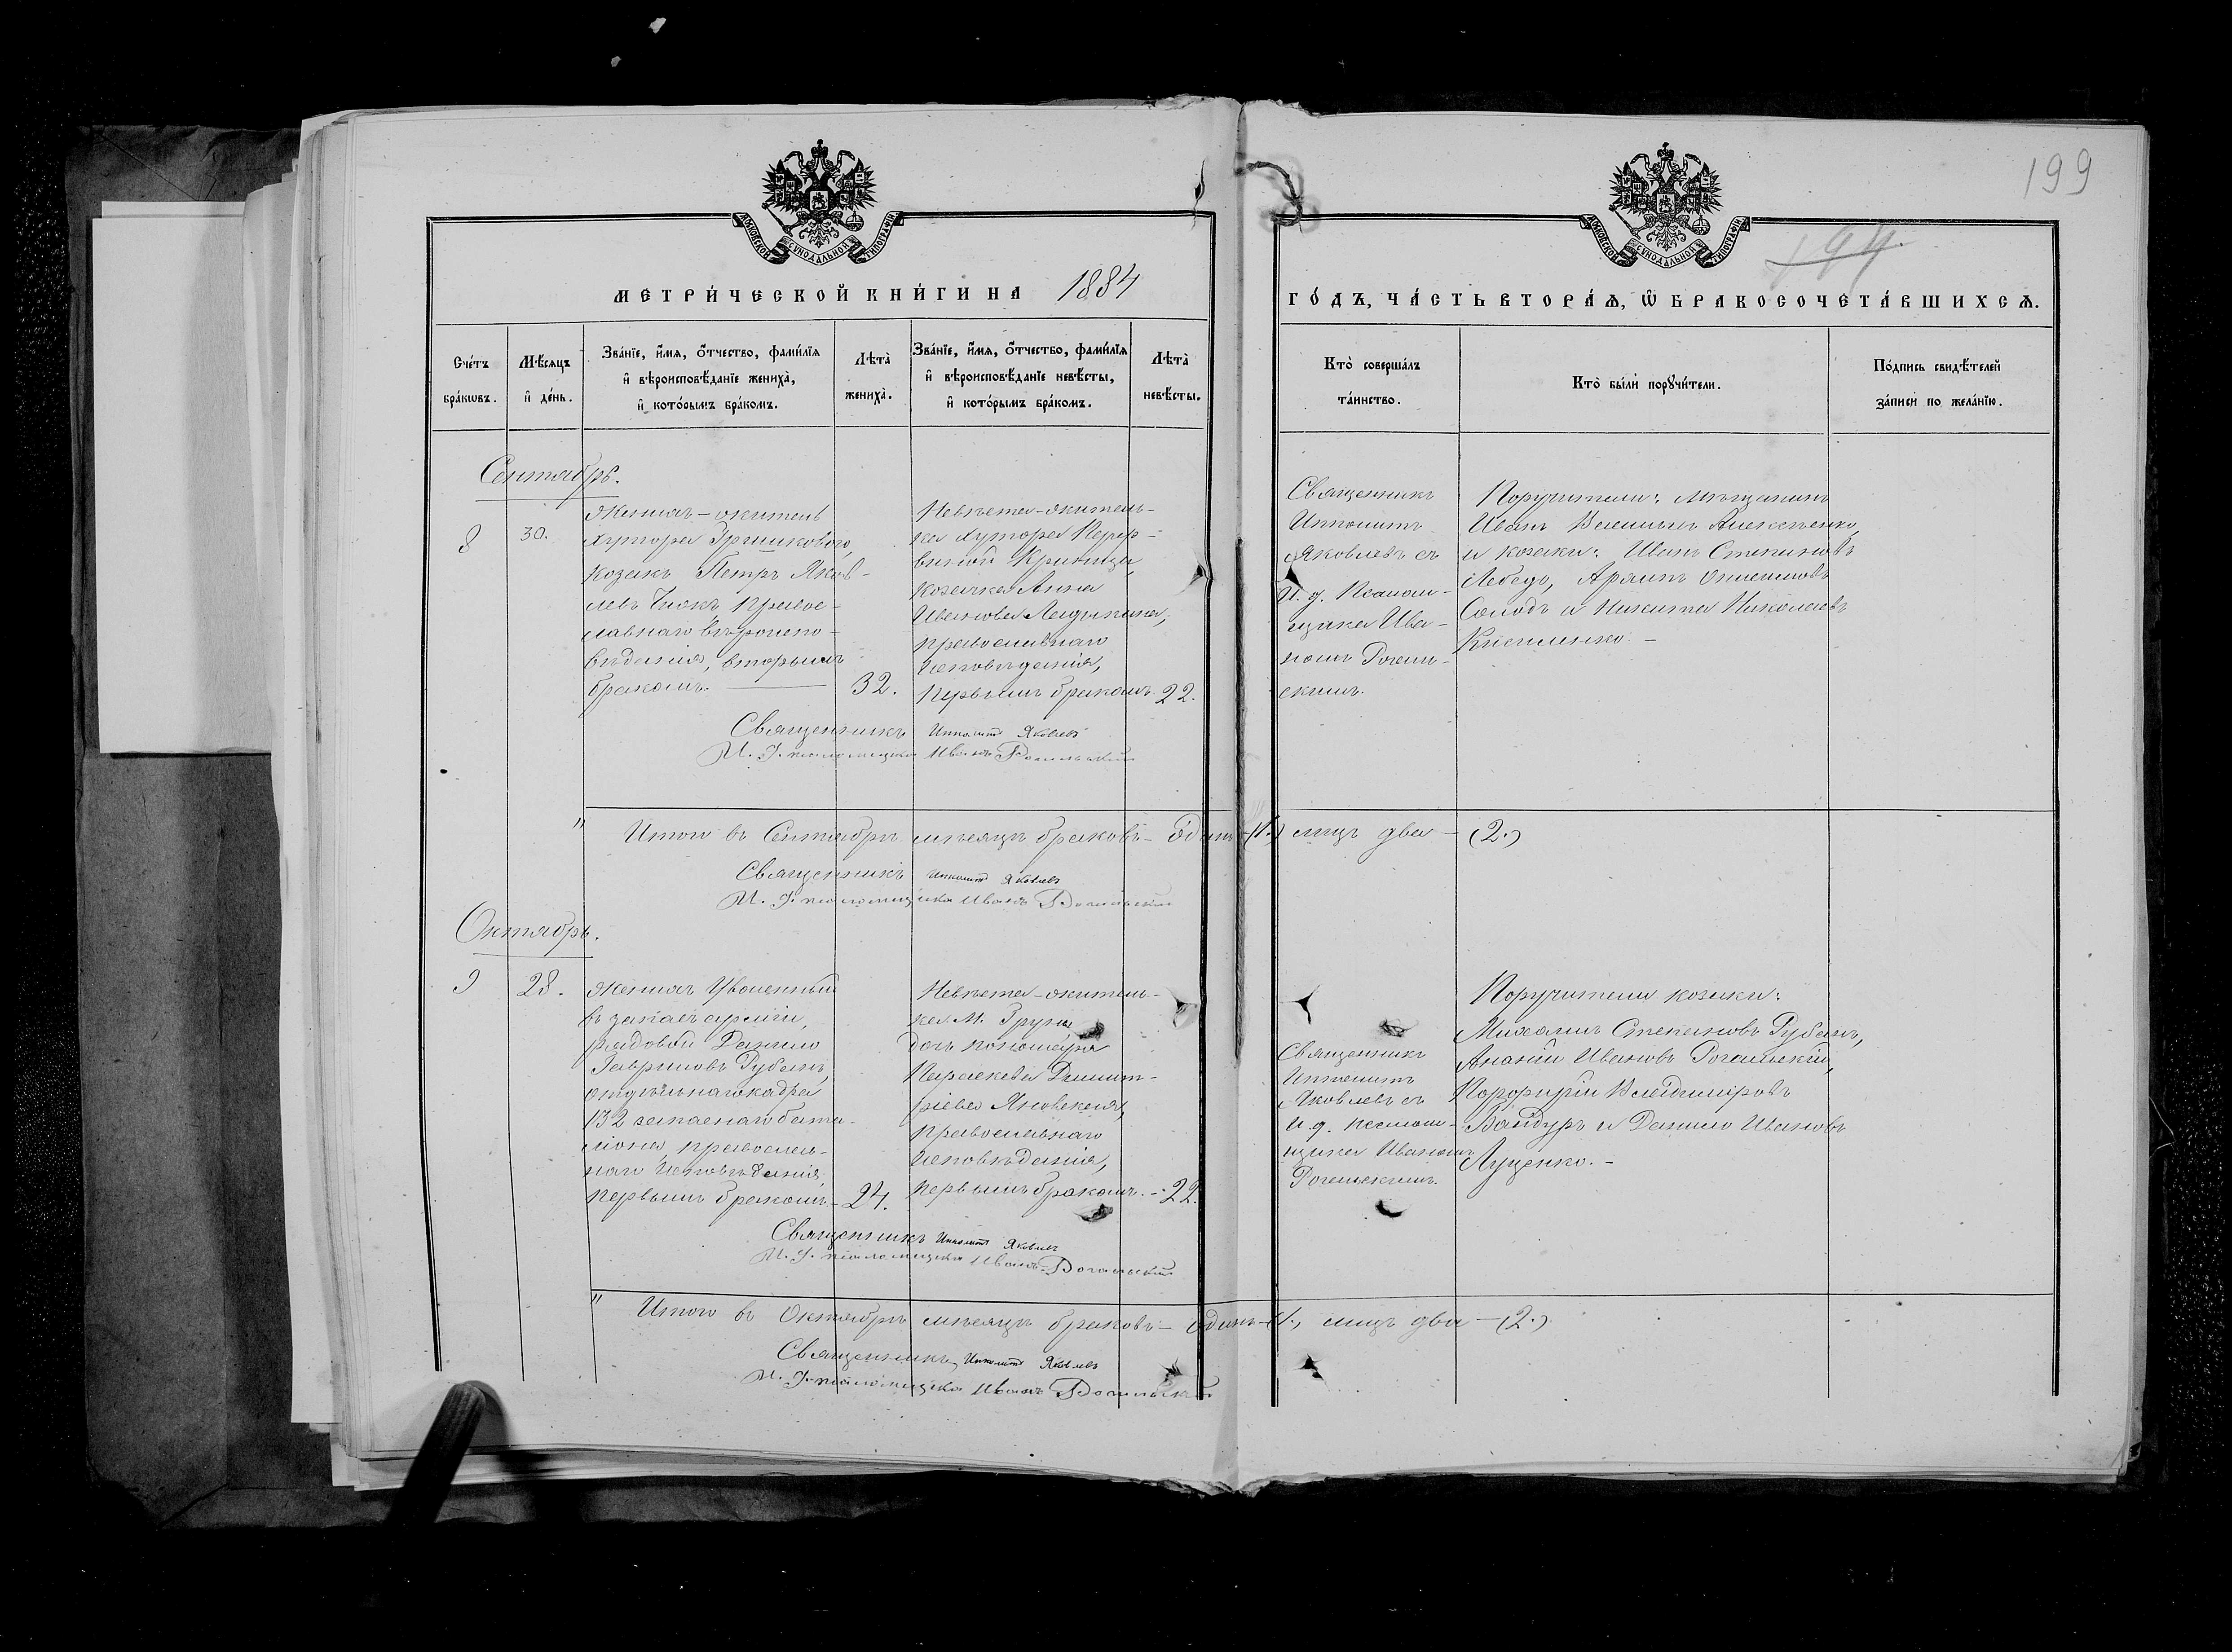 199
194
МЕТРИ́ЧЕСКОЙ КНИ́ГИ НА 1884
ГО́ДЪ, ЧА́СТЬ ВТОРА́Ѧ, Ѡ БРАКОСОЧЕТА́ВШИХСѦ.
МОСКОВСКОЙ СѴНОДАЛЬНОЙ ТИПОГРАФІИ
МОСКОВСКОЙ СѴНОДАЛЬНОЙ ТИПОГРАФІИ
Сче́тъ
бра́кѡвъ.
Мѣ́сяцъ
и де́нь.
Зва́нїе, и́мя, о́тчество, фами́лїя
и вѣроисповѣ́данїе жениха̀,
и кото́рымъ бра́комъ.
Лѣта̀
жениха̀.
Зва́нїе, и́мя, о́тчество, фами́лїя
и вѣроисповѣ́данїе невѣ́сты,
и кото́рымъ бра́комъ.
Лѣта̀
невѣ́сты.
Кто̀ соверша́лъ
та́инство.
Кто̀ бы́ли порꙋчи́тели.
По́дпись свидѣ́телей
за́писи по жела́нїю.
Сентябрь.
8
30.
Женихъ - житель
хутора Гришкового,
козакъ Петръ Яков-
левъ православнаго вѣроиспо-
вѣданія, вторымъ
бракомъ.
32.
Невѣста - житель-
ка хутора
Криницы,
козачка Анна
Иванова
православнаго
исповѣданія,
первымъ бракомъ
22.
Священникъ
Ипполитъ
Яковлевъ съ
И. д. Псалом-
щика Ива-
номъ Рогаль-
скимъ.
Поручители: мѣщанинъ
Иванъ Алексѣенко,
и козаки: Иванъ Степановъ
Лебедь,
Солодъ и Никита Николаевъ
Священникъ Ипполитъ Яковлевъ
И. д. псаломщика Иванъ Рогальскій
" Итого въ Сентябрѣ мѣсяцѣ браковъ - одинъ - (1.) лицъ два - (2.)
Священникъ Ипполитъ Яковлевъ
И. д. псаломщика Иванъ Рогальскій
Октябрь.
9
28.
Женихъ Уволенный
въ запасъ арміи,
рядовой Данило
Гавриловъ Рубанъ,
отдѣльнаго кадра
132 запаснаго бата-
ліона, православ-
наго исповѣданія,
первымъ бракомъ -
24.
Невѣста - житель-
ка М. Груни
дочь пономаря
Параскева Димит-
ріева Яновская,
православнаго
исповѣданія,
первымъ бракомъ. -
22.
Священникъ
Ипполитъ
Яковлевъ съ
и. д. псалом-
щика Иваномъ
Рогальскимъ.
Поручители козаки:
Михаилъ Степановъ Рубанъ,
Ананій Ивановъ Рогальскій,
Порфирій Владиміровъ
Бандуръ и Данило Ивановъ
Луценко. -
Священникъ Ипполитъ Яковлевъ
И. д. псаломщика Иванъ Рогальскій
" Итого въ Октябрѣ мѣсяцѣ браковъ - одинъ - (1., лицъ два - (2.)
Священникъ Ипполитъ Яковлевъ
И. д. псаломщика Иванъ Рогальскій